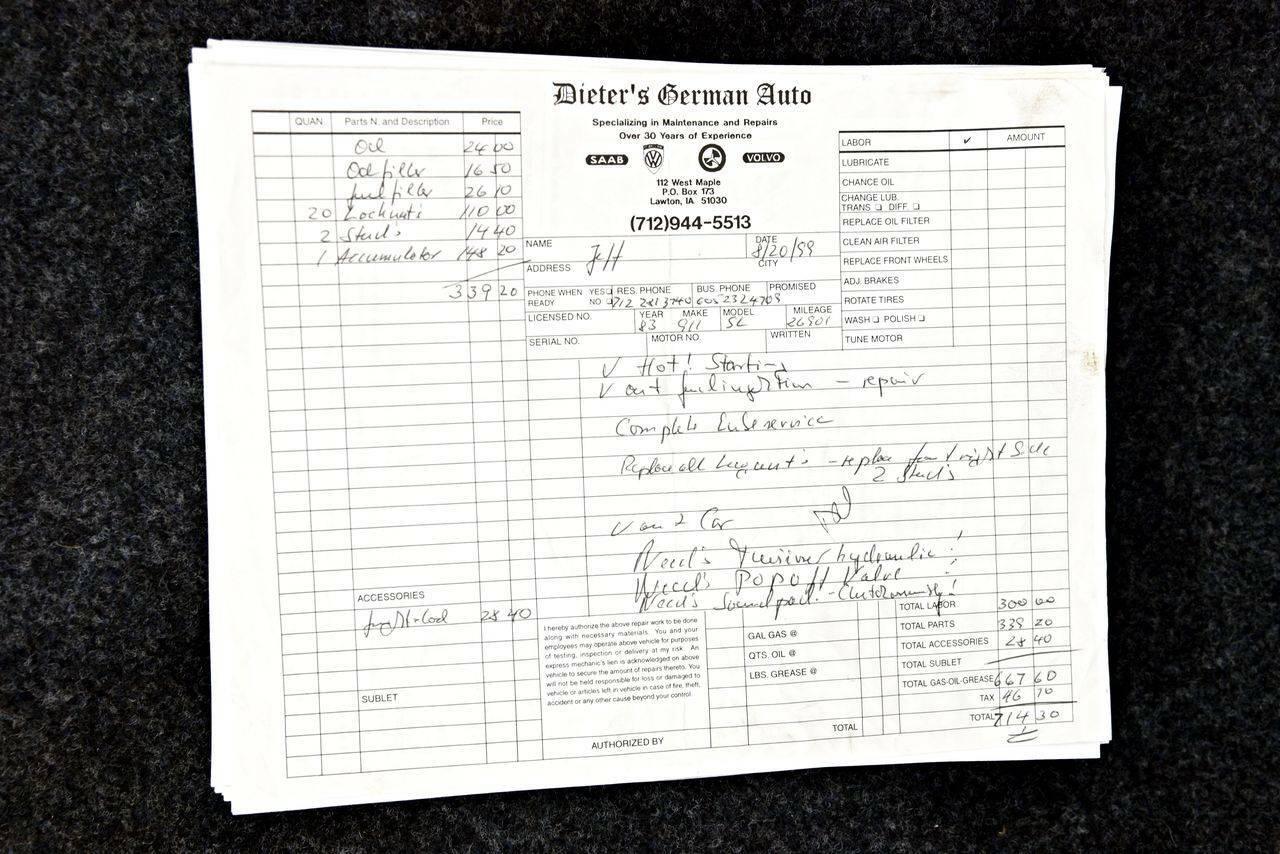 Dieter's German Auto
Specializing in Maintenance and Repairs
Over 30 Years of Experience
SAAB VOLVO
112 West Maple
P.O. Box 173
Lawton, IA 51030
(712)944-5513
QUAN. Parts N. and Description Price
Oil 24 00
Oil filler 16 50
fuel filler 26 10
20 Locknut's 110 00
2 Stud's 14 40
1 Accumulator 148 20
339 20
ACCESSORIES
28 40
SUBLET
NAME Jeff
DATE 8/20/99
ADDRESS
CITY
PHONE WHEN READY YES NO
RES. PHONE 712
BUS. PHONE 605 2324709
PROMISED
LICENSED NO.
YEAR 83
MAKE 911
MODEL SC
MILEAGE 26901
SERIAL NO.
MOTOR NO.
WRITTEN
LABOR ✓ AMOUNT
LUBRICATE
CHANCE OIL
CHANGE LUB.
TRANS ❏ DIFF ❏
REPLACE OIL FILTER
CLEAN AIR FILTER
REPLACE FRONT WHEELS
ADJ. BRAKES
ROTATE TIRES
WASH ❏ POLISH ❏
TUNE MOTOR
✓ Hot! Starting
✓ out - repair
Complete Lube service
Replace all - replace front right side
2 Stud's
Car
Need's hydraulic!
Need's Popoff Valve
Need's Soundpad!
I hereby authorize the above repair work to be done
along with necessary materials. You and your
employees may operate above vehicle for purposes
of testing, inspection or delivery at my risk. An
express mechanic's lien is acknowledged on above
vehicle to secure the amount of repairs thereto. You
will not be held responsible for loss or damaged to
vehicle or articles left in vehicle in case of fire, theft,
accident or any other cause beyond your control.
AUTHORIZED BY
GAL GAS @
QTS. OIL @
LBS. GREASE @
TOTAL
TOTAL LABOR 300 00
TOTAL PARTS 339 20
TOTAL ACCESSORIES 28 40
TOTAL SUBLET
TOTAL GAS-OIL-GREASE 667 60
TAX 46 70
TOTAL 714 30